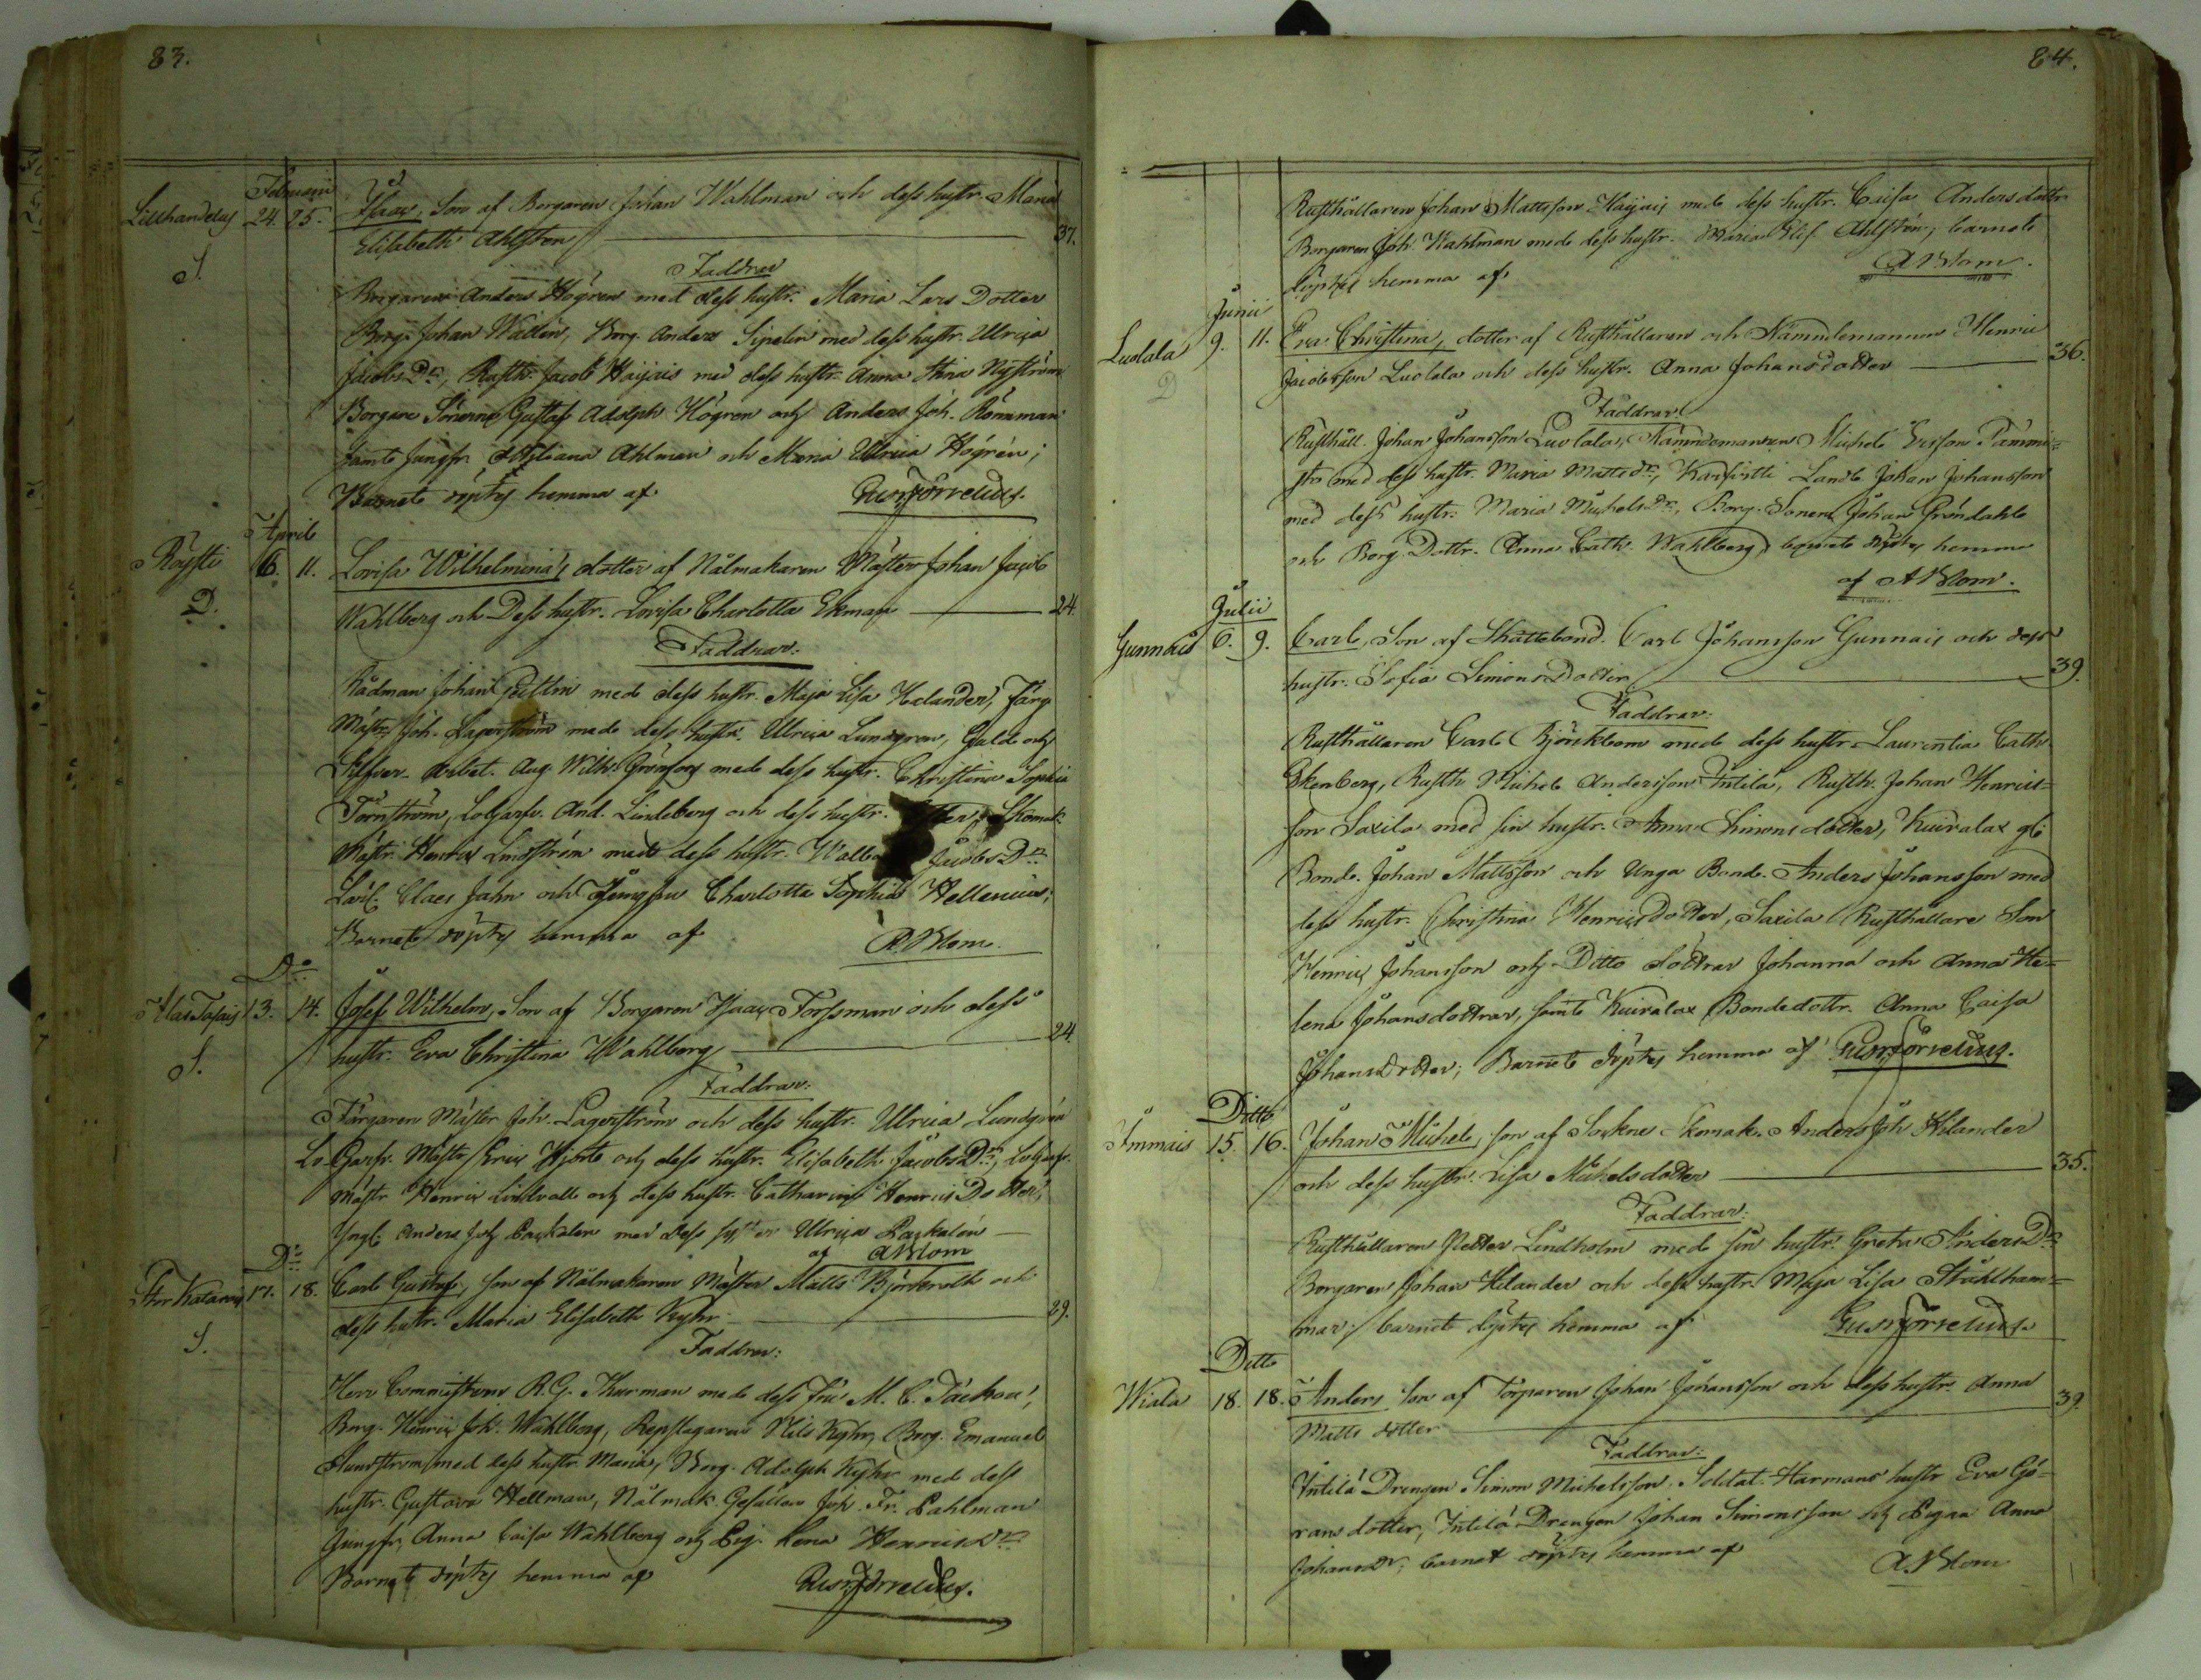 83.
Februarii
Lillhandelag 24. 25. Isaac, Son af Borgaren Johan Wahlman och dess hustr. Maria
Elisabeth Ahlsten 37.
S.
Faddrar
Borgaren Anders Högren med dess hustr. Maria Lars Dotter
Borg. Johan Wallin, Borg. Anders Sipelin med dess hustr. Ulrica
Jacobs Dr, Rusth. Jacob Haijais med dess hustr. Anna Stina Nyström
Borgare Sönerne Gustaf Adolph Högren och Anders Joh. Rönnman
samt Jungfr. Ahlman och Maria Ulrica Högrén;
Barnet döptes hemma af
April
Raysti 6. 11. Lovisa Wilhelmina, dotter af Nålmakaren Mäster Johan Jacob
D. Wahlberg och Dess hustr. Lovisa Charlotta Ekman 24.
Faddrar.
Rådman Johan med dess hustr. Maja Lisa Helander, Färg.
Mästr. Joh. Lagerström med dess hustr. Ulrica Lundgren, Guld och
Silfver Arbet. Aug. Wilh. Grönfors med dess hustr. Christina Sophia
Törnström, LoGarfv. And. Lindeberg och dess hustr. Skomak.
Mästr. Henric Lindström med dess hustr. Jacobs Dr
Claes Jahn och Jungfru Charlotta Sophia Hellenius;
Barnet döptes hemma af A. Blom.
Do
Alas Tasais 13. 14. Josef Wilhelm, Son af Borgaren Isaac Forssman och dess
S. hustr. Eva Christina Wahlberg 24.
Faddrar:
Färgaren Mäster Joh. Lagerström och dess hustr. Ulrica Lundgrén
Lo Garfv. Mäster Eric Hjorte och dess hustr. Elisabeth Jacobs Dr, LoGarfv.
mästr. Henric Lindvall och dess hustr. Catharina Henrics Dotter,
Yngl. Anders Joh. Packalen med dess syster Ulrica Packalén
af A Blom
Do
Stor Katava 17. 18. Carl Gustaf, son af Nålmakaren Mäster Matts Björkroth och
S. dess hustr. Maria Elisabeth Kyhr 29.
Faddrar:
Herr Commissarien R. G. Thurman med dess Fru M. C.
Borg. Henric Joh. Wahlberg, Repslagaren Nils Kyhr, Borg. Emanuel
Sundström med dess hustr. Maria, Borg. Adolph Kyhr med dess
hustr. Gustava Hellman, Nålmak. Gesällen Joh. Fr. Pahlman
Jungfr. Anna Caisa Wahlberg och Pig. Lena Henrics Dr
Barnet döptes hemma af
84.
Rusthållaren Johan Mattsson Haijais med dess hustr. Caisa Andersdotter
Borgaren Joh. Wahlman med dess hustr. Maria Elis. Ahlstén, barnet
döptes hemma af A Blom.
Junii
Luolala 9. 11. Eva Christina, dotter af Rusthållaren och Nämndemannen Henric
D Jacobsson Luolala och dess hustr. Anna Johansdotter 36.
Faddrar
Rusthåll. Johan Johansson Luolala, Nämndemannen Michel Ersson Tammi=
sto med dess hustr. Maria Matts Dr, Landb. Johan Johansson
med dess hustr. Maria Michels Dr, Borg. Sonen Johan Gröndahl
och Borg. Dottr. Anna Cath. Wahlberg, barnet döptes hemma
af A Blom.
Julii
Gunnais 6. 9. Carl, Son af Skattebond. Carl Johansson Gunnais och dess
hustr. Sofia Simons Dotter 39.
Faddrar:
Rusthållaren Carl Björkbom med dess hustr. Laurentia Cath.
Ekenberg, Rusth. Michel Andersson Intilä, Rusth. Johan Henrics=
son Saxila med sin hustr. Anna Simonsdotter, Kuiralax gl.
Bonde. Johan Mattsson och Unga Bonde. Anders Johansson med
dess hustr. Christina Henricsdotter, Saxila Rusthållare Son
Henric Johansson och Ditto dottrar Johanna och Anna He=
lena Johansdottrar, samt Kuiralax Bondedottr. Anna Caisa
Johansdotter; Barnet döptes hemma af
Ditto
Immais 15. 16. Johan Michel, son af Sockne Skomak. Anders Joh. Helander
och dess hustr. Lisa Michelsdotter 35.
Faddrar:
Rusthållaren Petter Lindholm med sin hustr. Greta Anders Dr
Borgaren Johan Helander och dess hustr. Maja Lisa Stråhlham=
mar; barnet döptes hemma af
Ditto
Wiala 18. 18. Anders son af Torparen Johan Johansson och dess hustr. Anna
Matts dotter 39.
Faddrar:
Intilä Drengen Simon Michelsson, Soldat. Harmans hustr. Eva Gö=
rans dotter, Intilä Drengen Johan Simonsson och Pigan Anna
Johans Dr; barnet döptes hemma af A. Blom